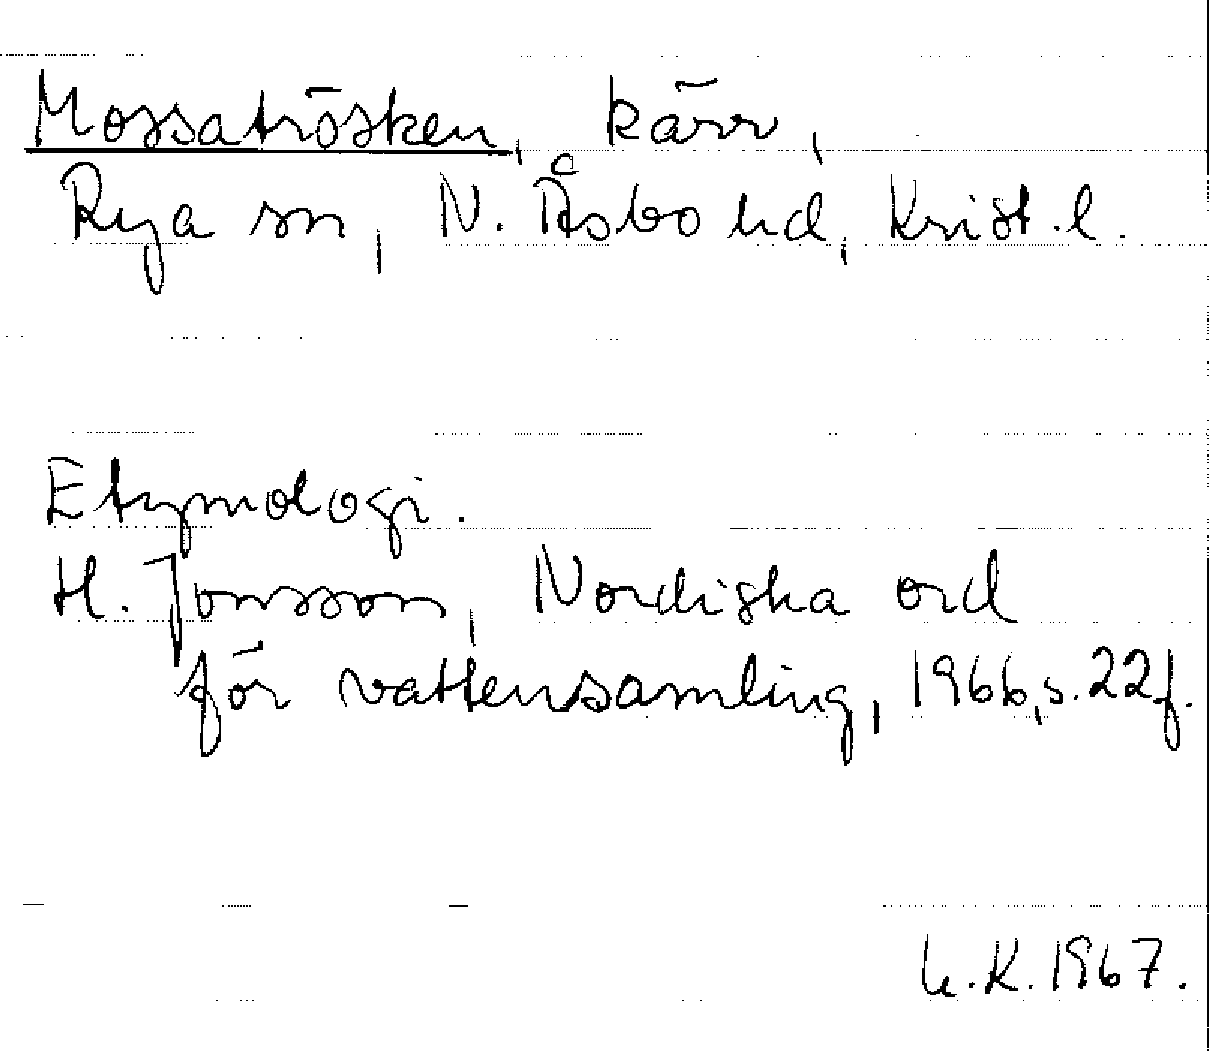 Mossatrösken, kärr,
Rya sn, N. Åsbo hd, Krist. l.
Etymologi.
H. Jonsson, Nordiska ord
för vattensamling, 1966, s. 22 f.
K. 1967.